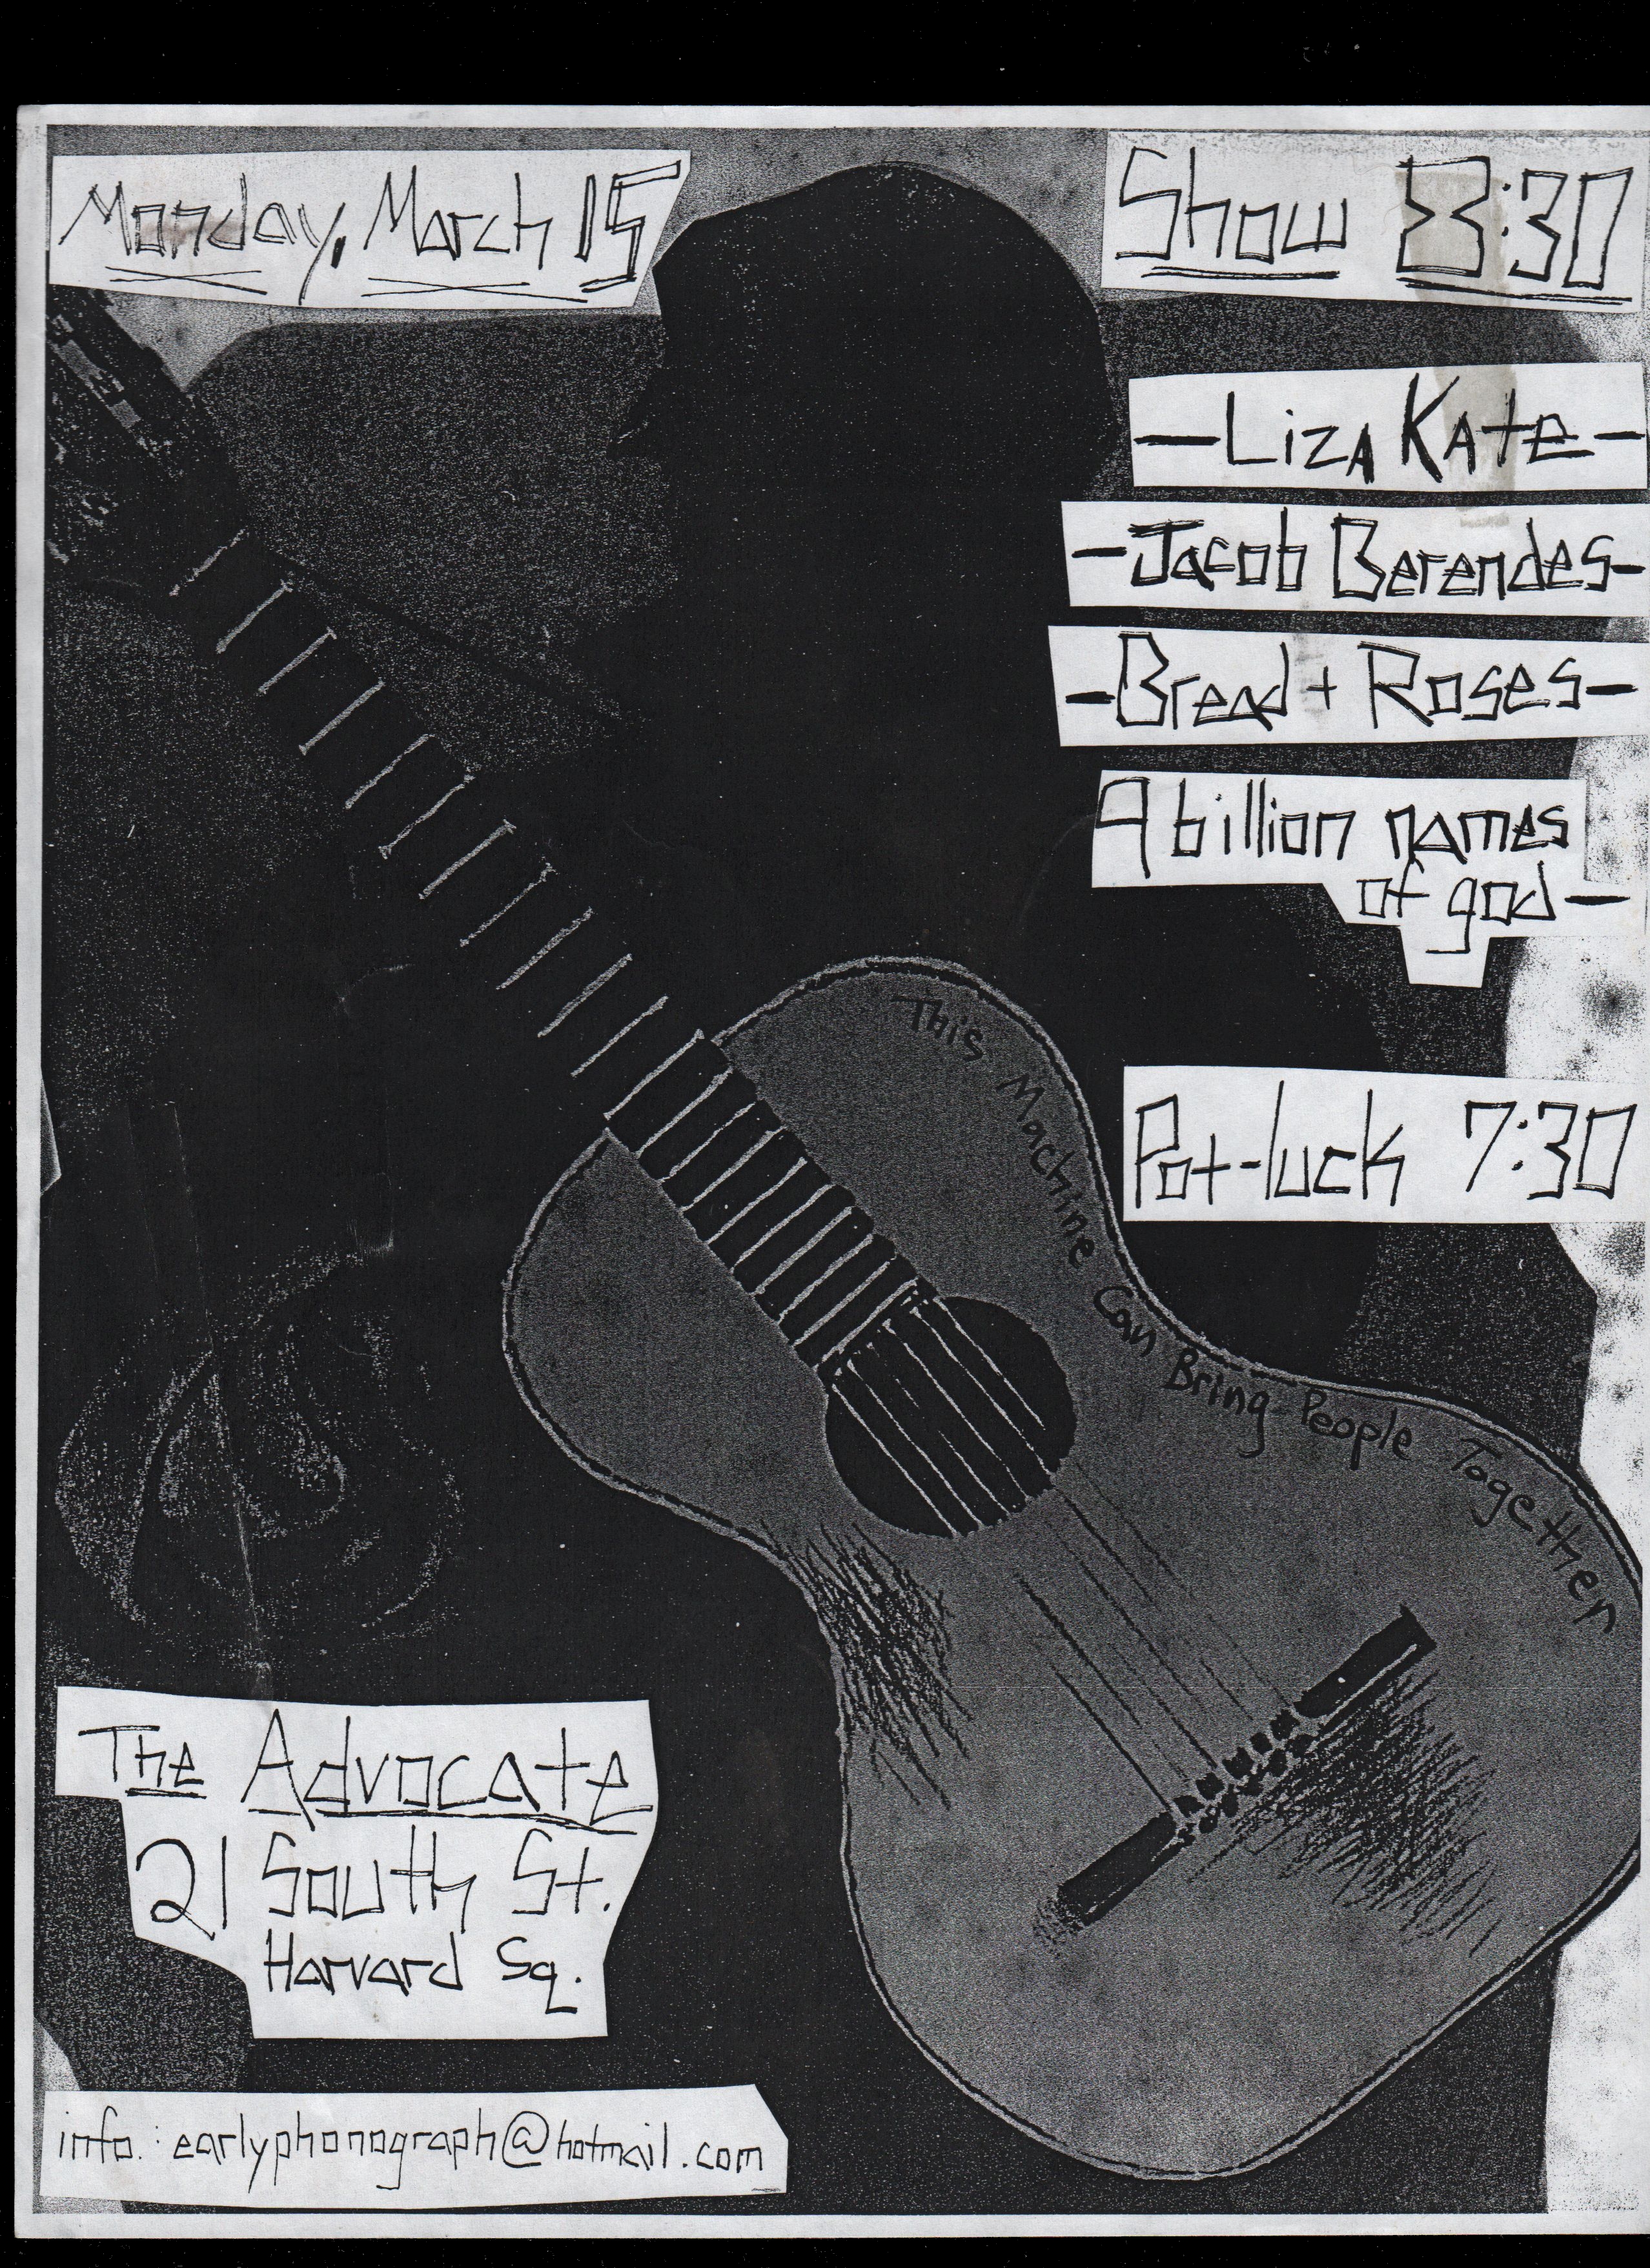 Monday, March 15
Show 8:30
—Liza Kate—
—Jacob Berendes—
—Bread + Roses—
9 billion names
of god—
Pot-luck 7:30
This Machine Can Bring People Together
The Advocate
21 South St.
Harvard Sq.
info.: earlyphonograph@hotmail.com